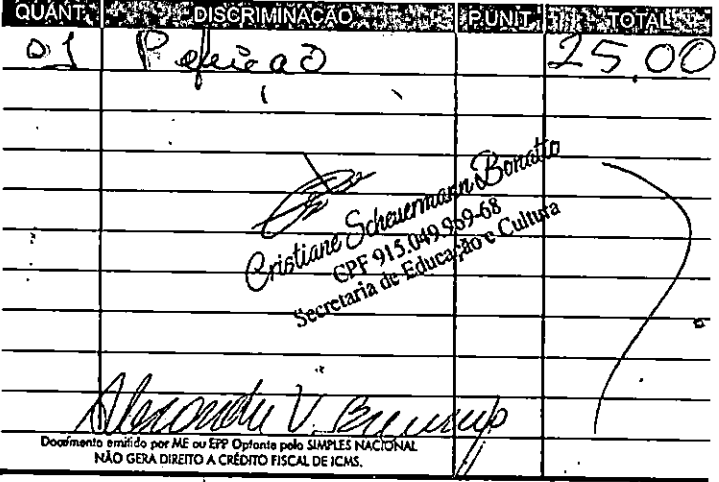 QUANT. DISCRIMINAÇÃO P.UNIT. TOTAL
01 Refeição 25,00
Cristiane Scheuermann Bonatto
CPF 915.049.969-68
Secretaria de Educação e Cultura
V.
Documento emitido por ME ou EPP Optante pelo SIMPLES NACIONAL
NÃO GERA DIREITO A CRÉDITO FISCAL DE ICMS.